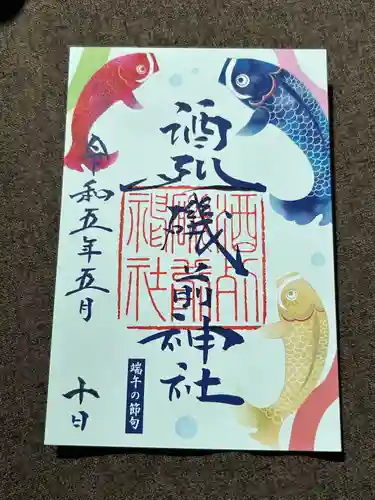 酒列
磯前神社
令和五年五月
十日
端午の節句
酒列
磯前
神社